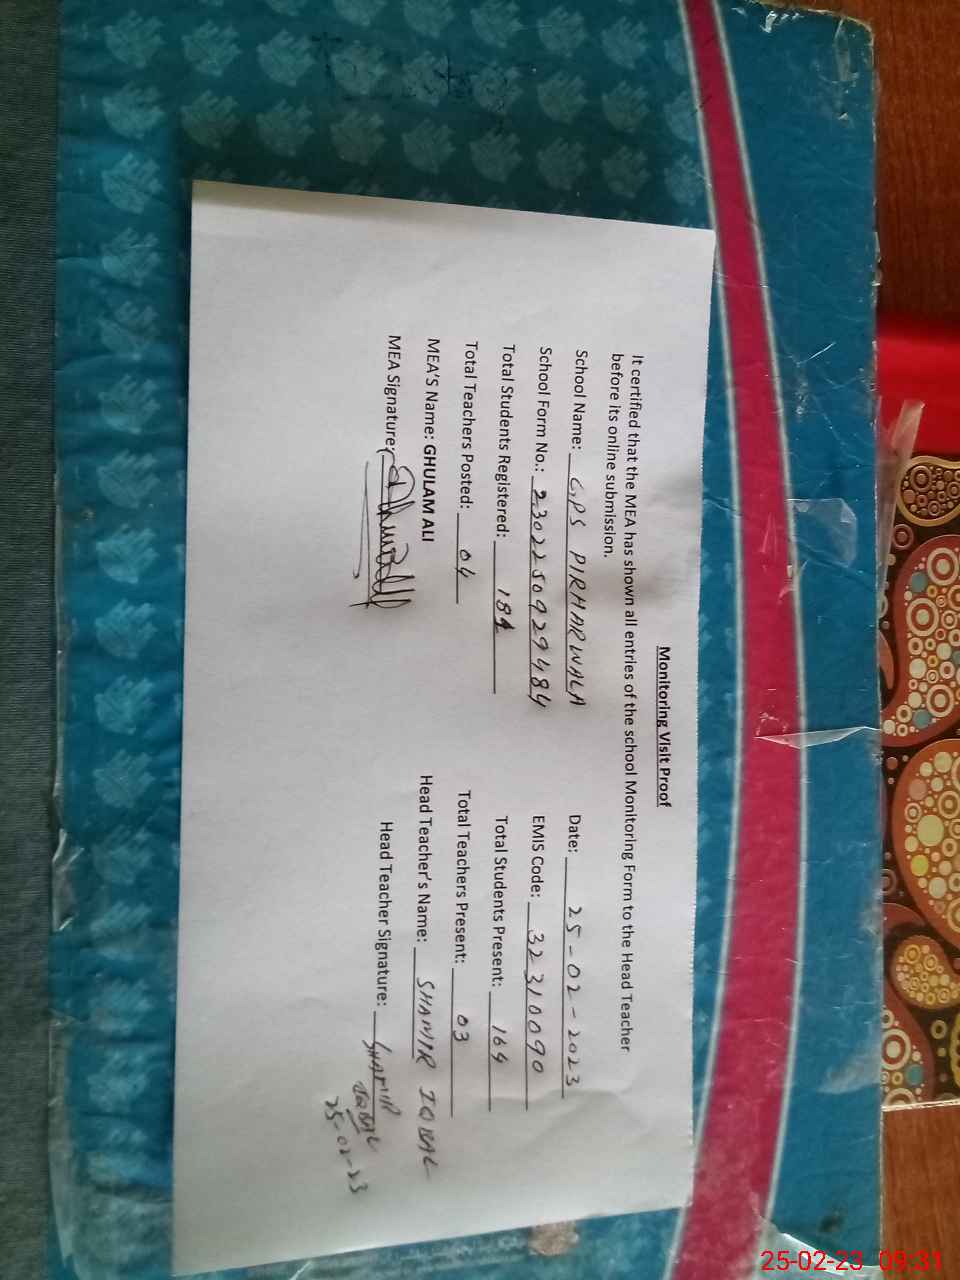 Monitoring Visit Proof
It certified that the MEA has shown all entries of the school Monitoring Form to the Head Teacher
before its online submission.
School Name: GPS PIRHARWALA Date: 25-02-2023
School Form No.: 2302250929484 EMIS Code: 32310090
Total Students Registered: 184 Total Students Present: 164
Total Teachers Posted: 04 Total Teachers Present: 03
MEA'S Name: GHULAM ALI Head Teacher's Name: SHAMIR IQBAL
MEA Signature: Head Teacher Signature: SHAMIR
IQBAL
25-02-23
25-02-23 09:31